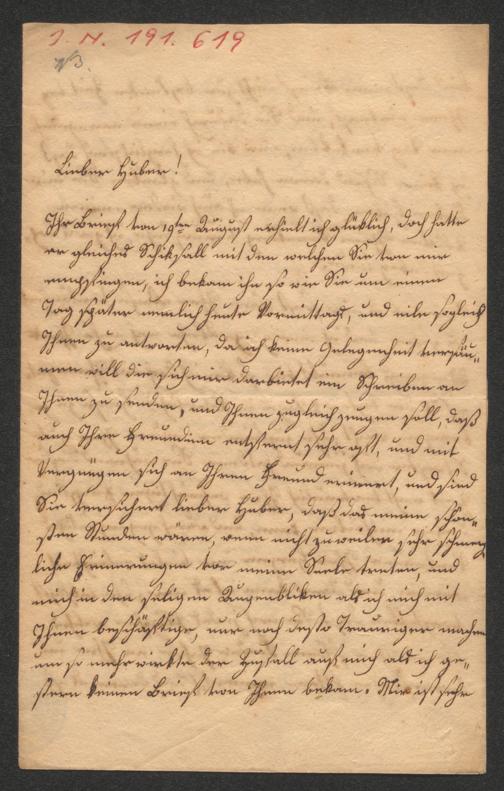 J. N. 191. 619
Lieber Huber!
Ihr Brief von 19ten August erhielt ich glüklich, doch hatte
er gleiches Schiksall mit dem welchen Sie von mir
empfingen, ich bekam ihn so wie Sie um einen
Tag später nemlich heute Vormittags, und eile sogleich
Ihnen zu antworten, da ich keine Gelegenheit versäu„
men will die sich mir darbietet ein Schreiben an
Ihnen zu senden, und Ihnen zugleich zeugen soll, daß
auch Ihre Freundinn entfernt sehr oft, und mit
Vergnügen sich an Ihren Freund erinert, und sind
Sie versichert lieber Huber, daß das meine schön„
sten Stunden wären, wenn nicht zuweilen sehr schmerz
liche Erinerungen vor meine Seele treten, und
mich in den seligen Augenbliken als ich mich mit
Ihnen beschäftige, nur noch desto Trauriger machen
um so mehr wirkte der Zufall auf mich als ich ge„
stern keinen Brief von Ihnen bekam. Mir ist sehr